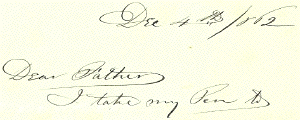 Dec 4th /862
Dear Father
I take my Pen to